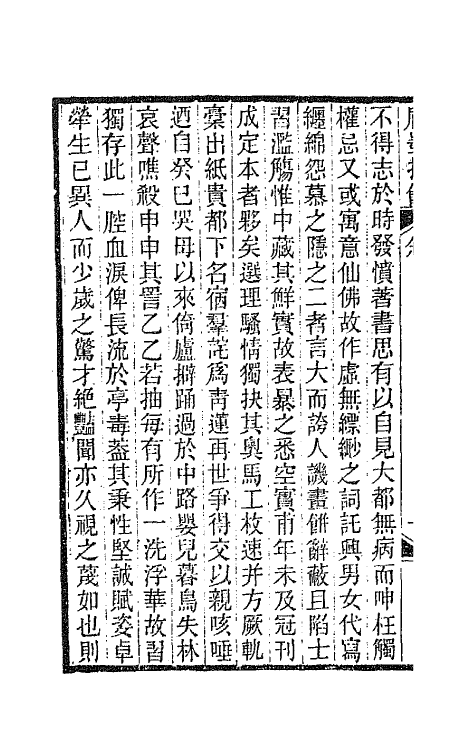 不得志於時發憤著書思有以自見大都無病而呻枉觸
權忌又或寓意仙佛故作虛無縹緲之詞託興男女代寫
纏綿怨慕之隱之二者言大而誇人譏畫餅辭蔽且陷士
習濫觴惟中藏其鮮實故表暴之悉空實甫年未及冠刊
成定本者夥矣選理騷情獨抉其奧馬工枚速并方厥軌
稾出紙貴都下名宿羣詫爲青蓮再世爭得交以親咳唾
迺自癸巳哭母以來倚廬擗踊過於中路嬰兒暮鳥失林
哀聲噍殺申申其詈乙乙若抽每有所作一洗浮華故習
獨存此一腔血淚俾長流於亭毒葢其秉性堅誠賦姿卓
犖生已異人而少歲之驚才絕豔聞亦久視之蔑如也則